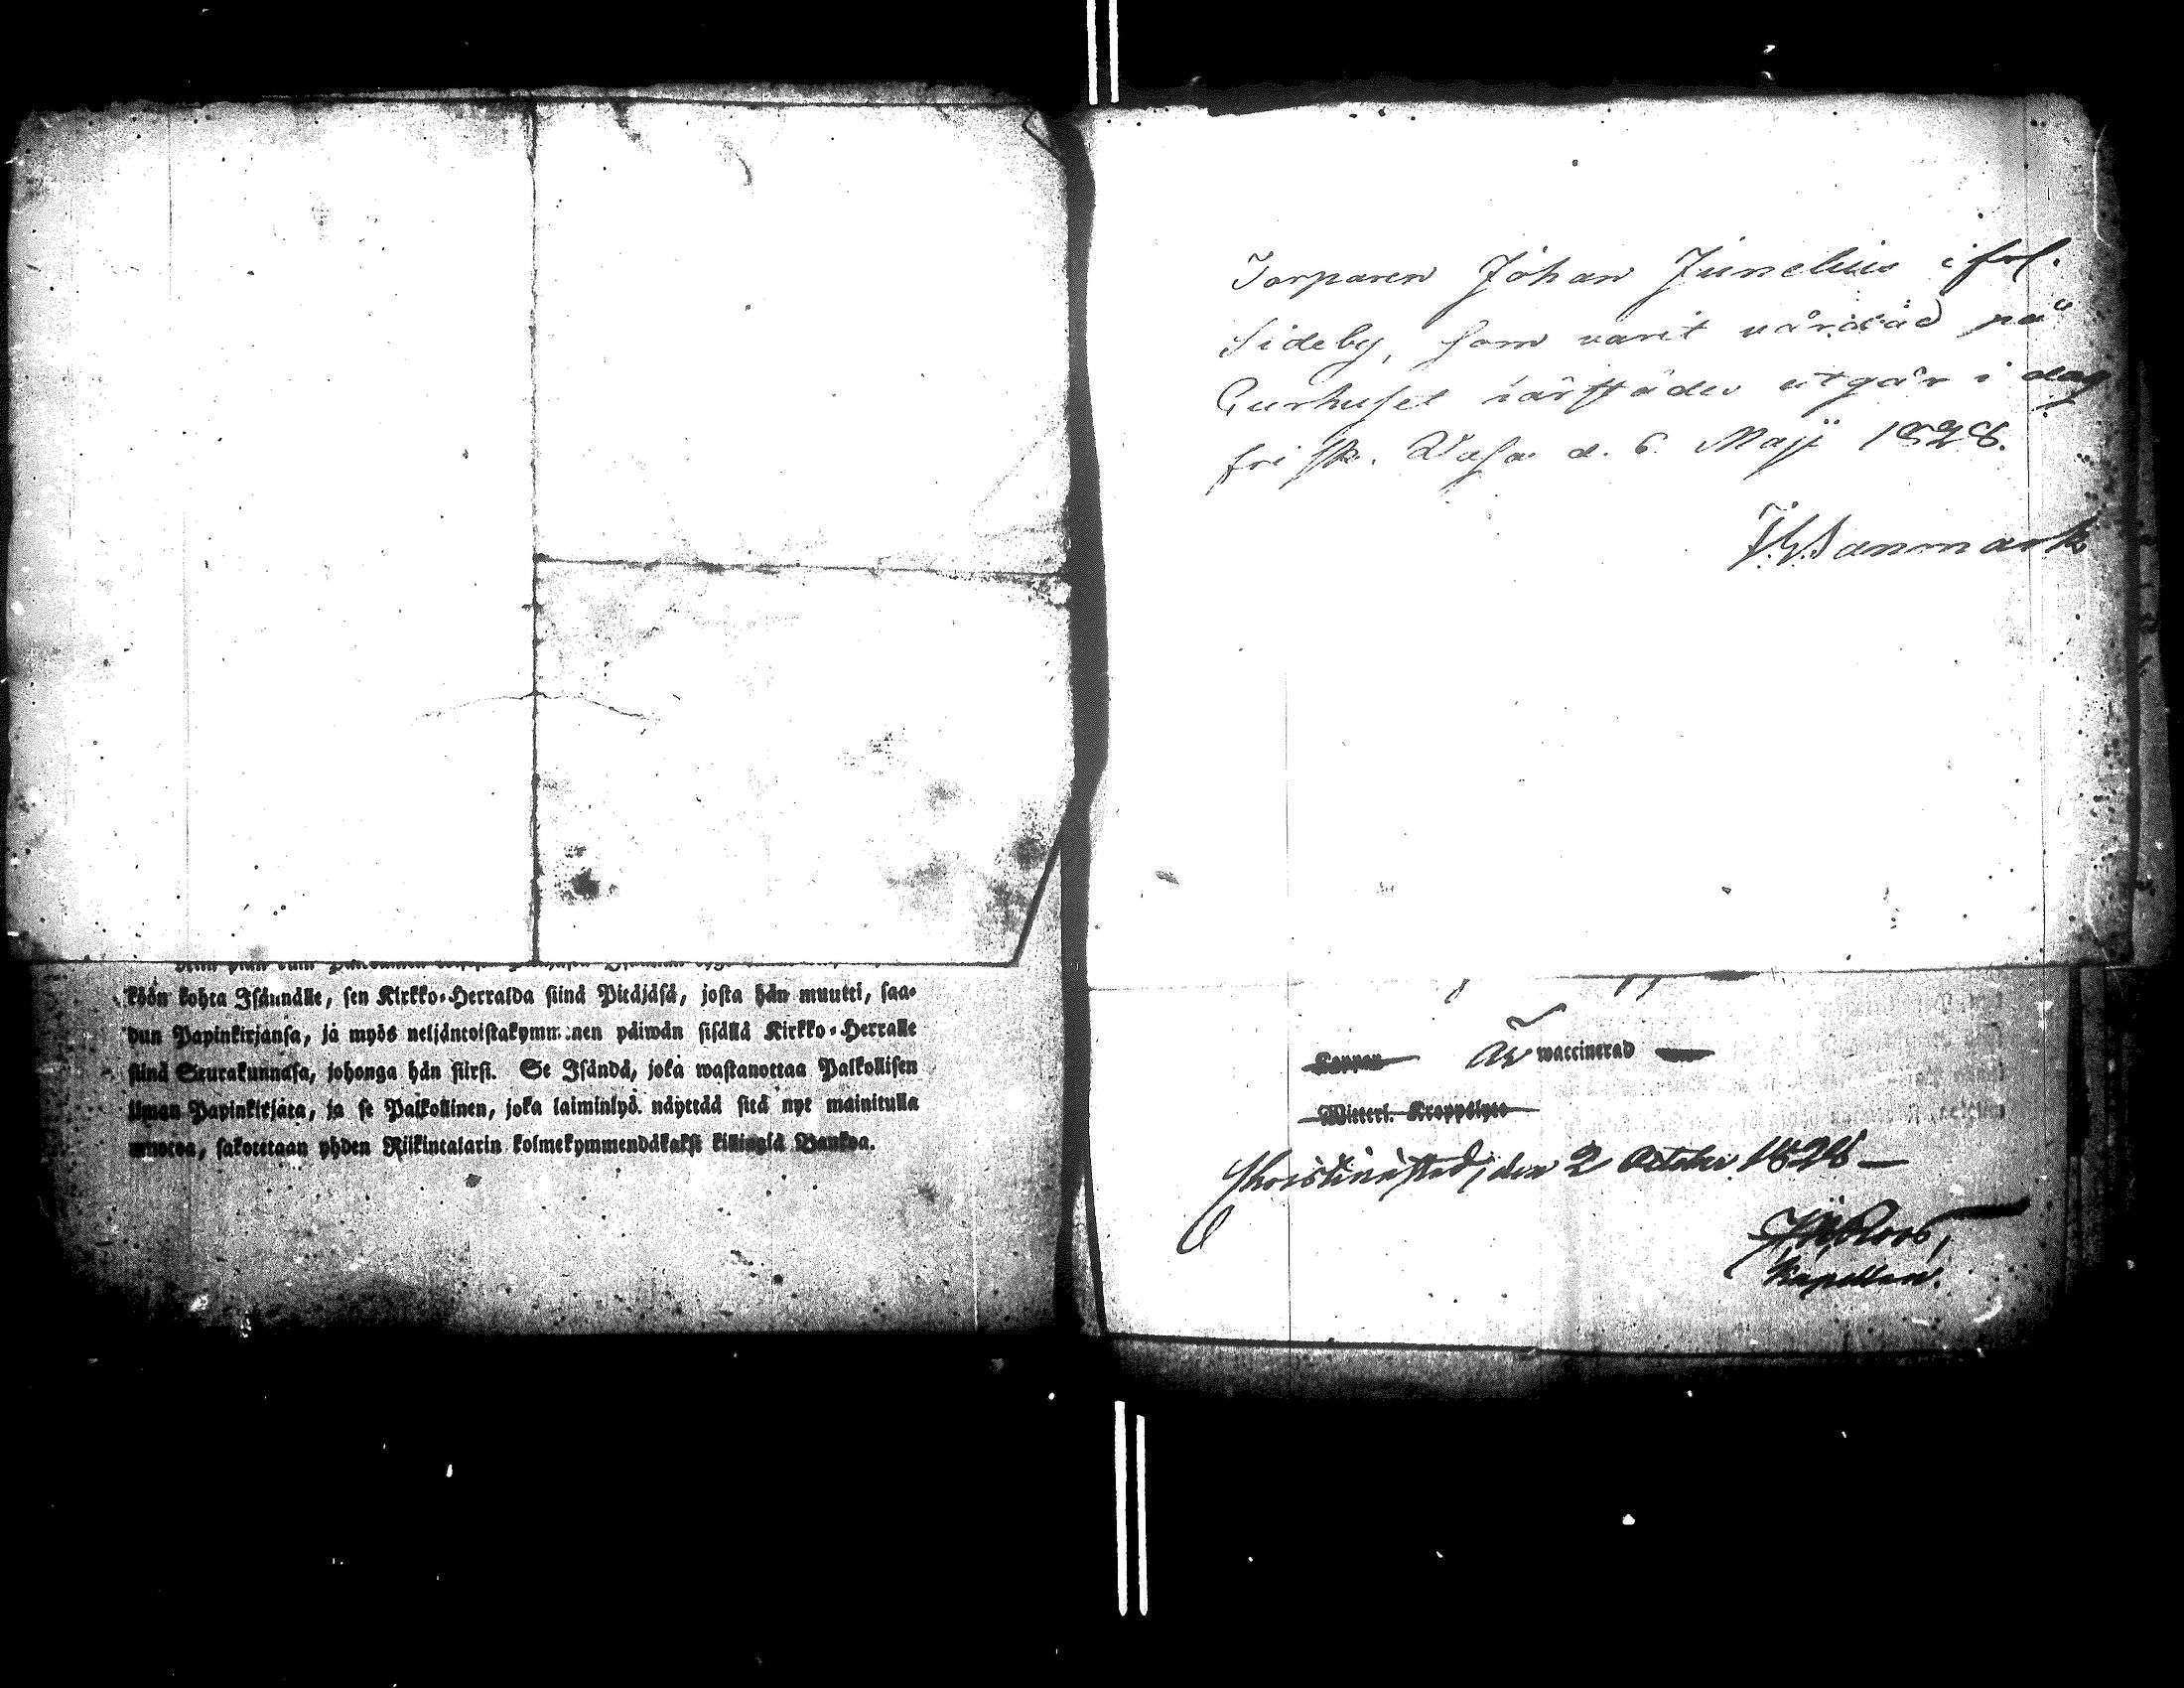 köön kohta Isännälle, sen Kirkko-Herralda siinä Pitäjäsä, josta hän muutti, saa-
dun Papinkirjansa, ja myös neljäntoistakymmenen päiwän sisällä Kirkko-Herralle
siinä Seurakunnasa, johonga hän siirsi. Se Isändä, joka wastanottaa Palkollisen
ilman Papinkirjata, ja se Palkollinen, joka laiminlyö näyttää sitä nyt mainitulla
muotoa, sakotetaan yhden Riikintalarin kolmekymmendäkaksi killingiä Bankoa.
Torparen Johan Junelius ifrl.
Sideby, som varit vårdad på
Curhuset härstädes utgår i dag
frisk. Wasa d. 6 Maji 1828.
J. G. Sanmark
Koppor Är waccinerad
Wittert. Kroppslyte
Christinestad, den 2 October 1828
Roos,
Kapellan.